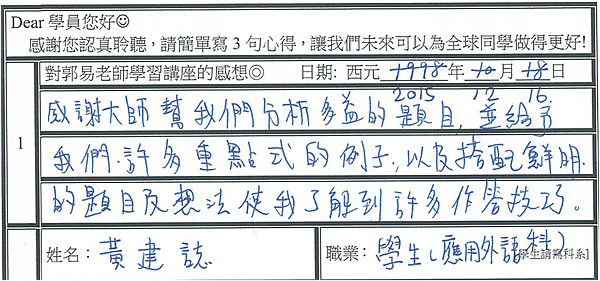 Dear 學員您好☺
感謝您認真聆聽，請簡單寫 3 句心得，讓我們未來可以為全球同學做得更好!
對郭易老師學習講座的感想◎ 日期: 西元 1998 年 10 月 18 日
2015 12 16
1
感謝大師幫我們分析多益的題目,並給予
我們許多重點式的例子,以及搭配鮮明
的題目及想法使我了解到許多作答技巧。
姓名：黃建誌
職業：學生(應用外語科)
[學生請寫科系]